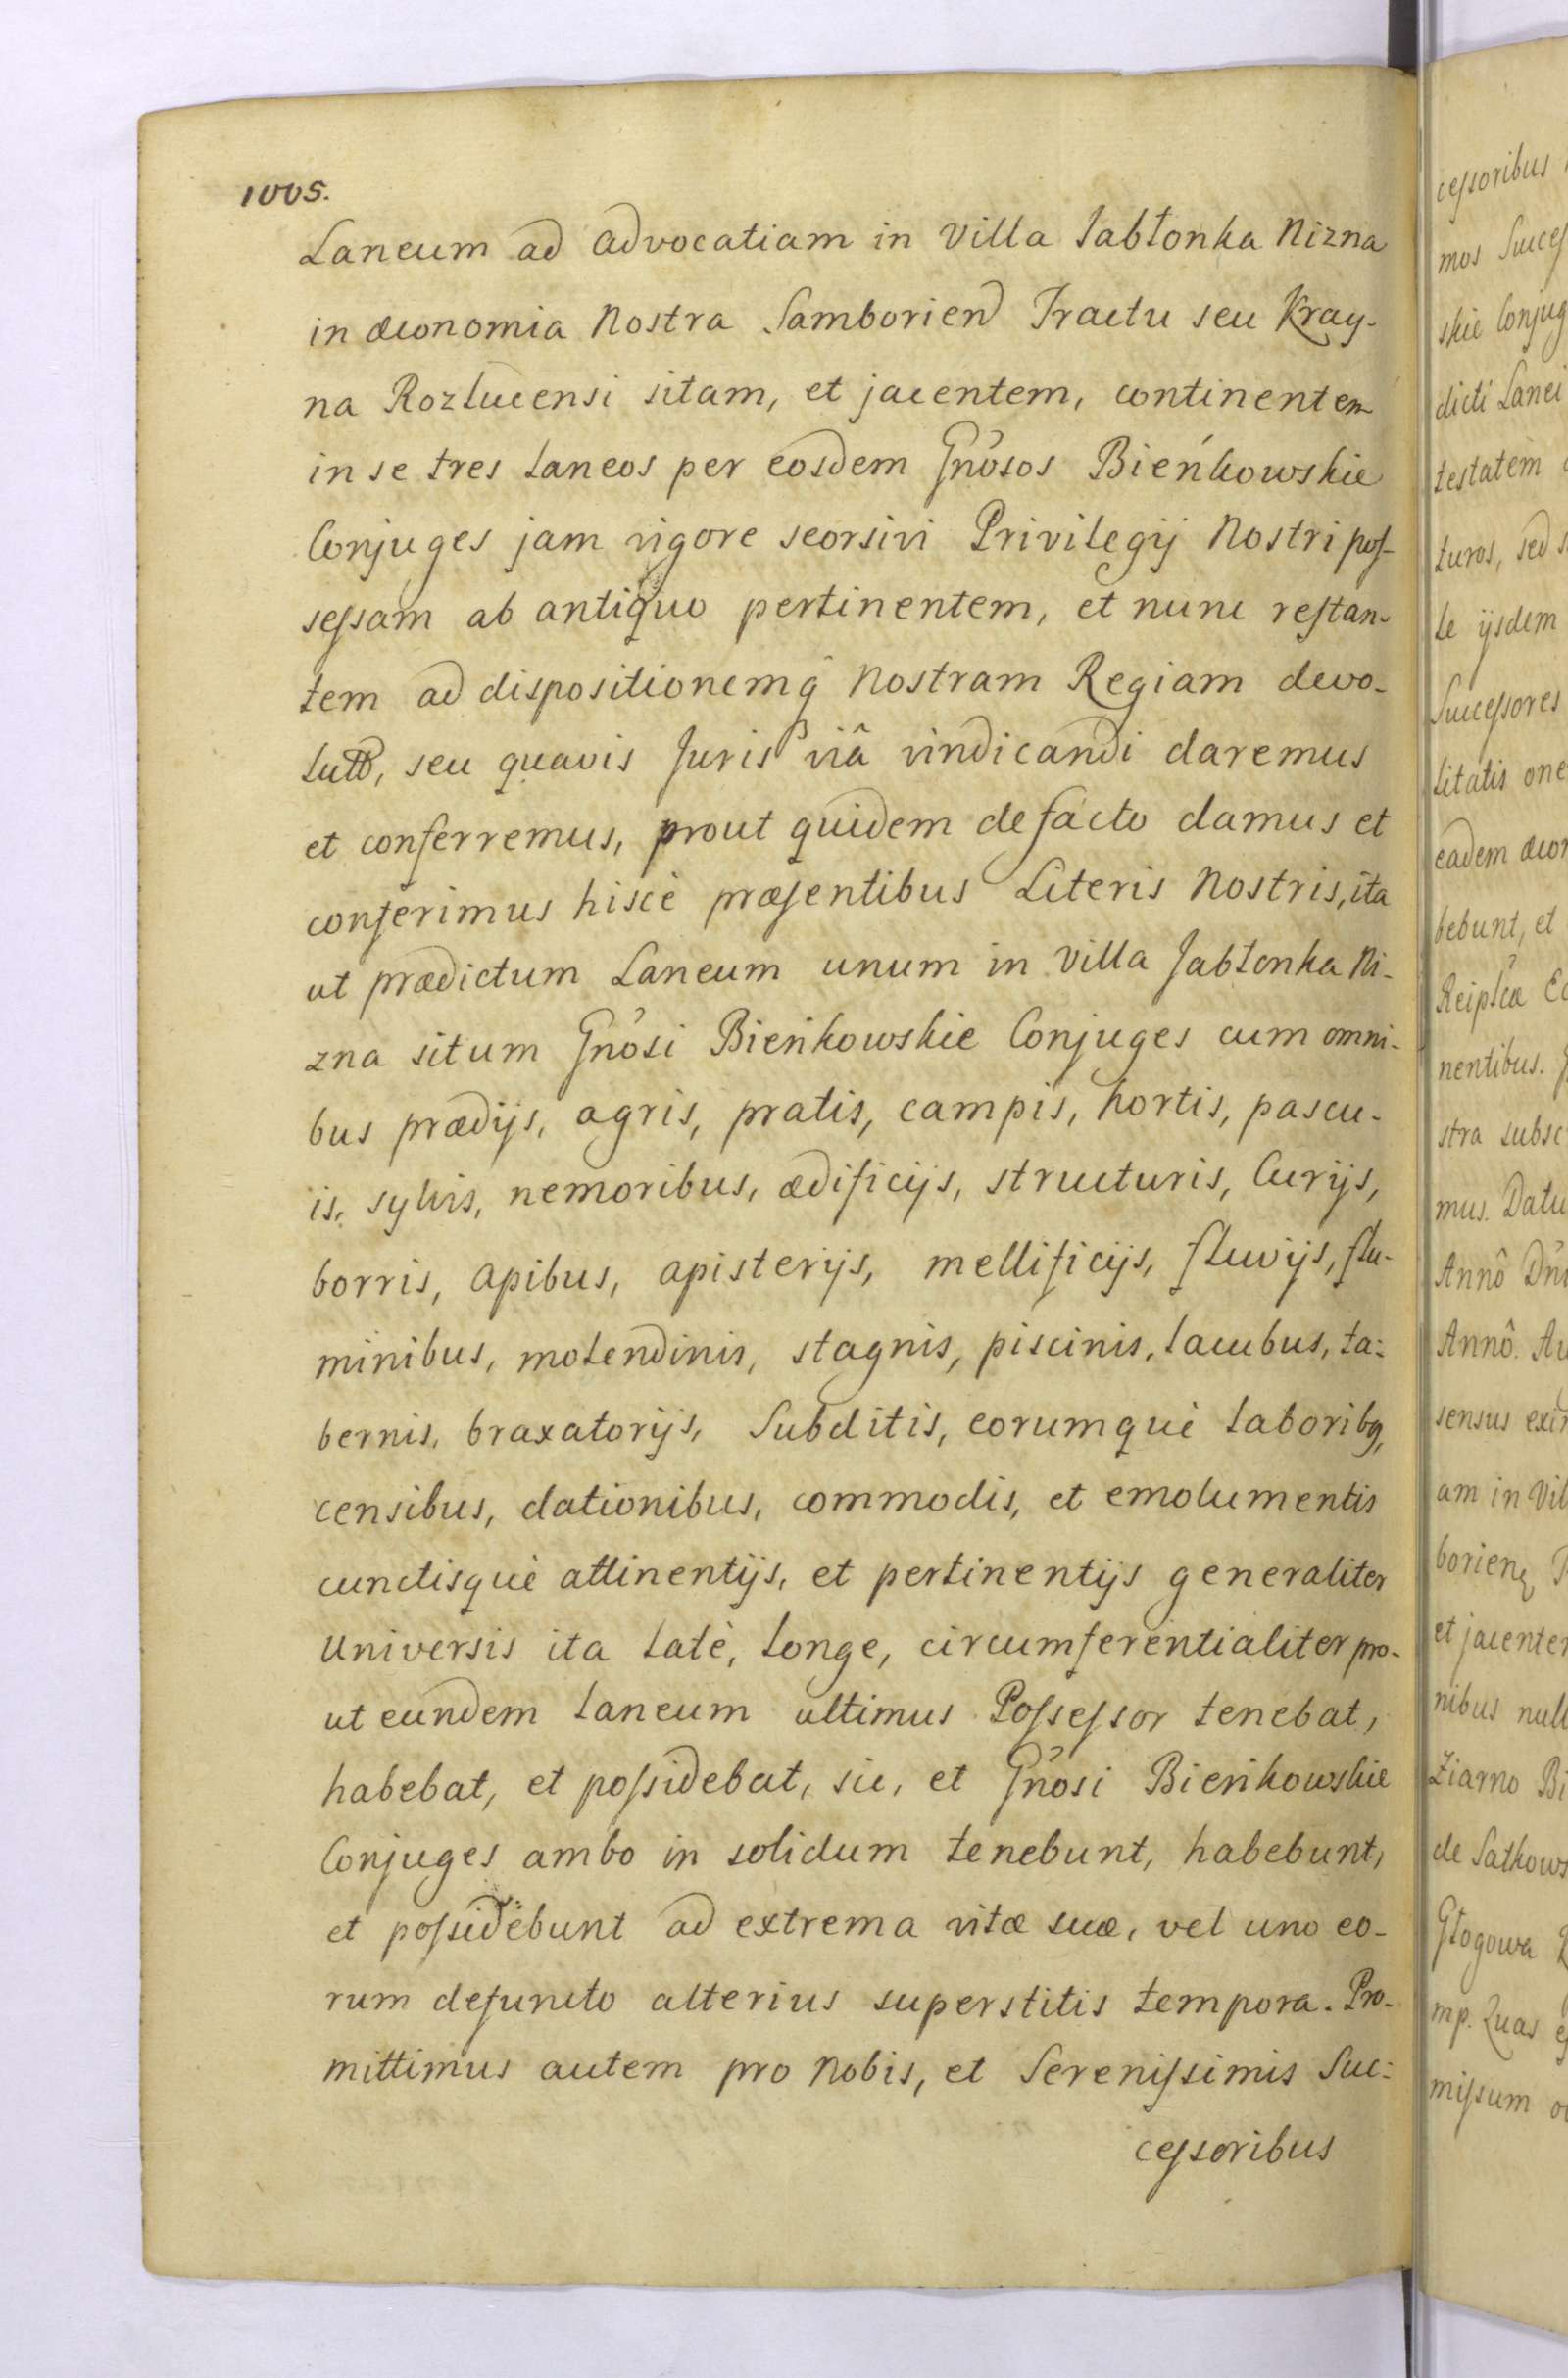 1005.
Laneum ad advocatiam in Villa Jabłonka Nizna
in œconomia Nostra Samborien Tractu seu Kray-
na Rozlucensi sitam, et jacentem, continentem
in se tres Laneos per eosdem Gnosos Bieńkowskie
Conjuges jam vigore seorsivi Privilegij Nostri pos-
sessam ab antiquo pertinentem, et nunc restan-
tem ad dispositionemq̃ Nostram Regiam devo-
seu quavis Juris viâ vindicandi daremus
et conferremus, prout quidem de facto damus et
conferimus hisce præsentibus Literis Nostris, ita
ut prædictum Laneum unum in Villa Jabłonka Ni-
zna situm Gnosi Bieńkowskie Conjuges cum omni-
bus prædijs, agris, pratis, campis, hortis, pascu-
is, sylvis, nemoribus, ædificijs, structuris, Curijs,
borris, apibus, apisterijs, mellificijs, fluvijs, flu-
minibus, molendinis, stagnis, piscinis, lacubus, ta:
bernis, braxatorijs, Subditis, eorumque laboribq,
censibus, dationibus, commodis, et emolumentis
cunctisquè attinentijs, et pertinentijs generaliter
Universis ita latè, longe, circumferentialiter pro-
ut eundem Laneum ultimus Possessor tenebat,
habebat, et possidebat, sic, et Gnosi Bieńkowskie
Conjuges ambo in solidum tenebunt, habebunt,
et possidebunt ad extrema vitæ suæ, vel uno eo-
rum defuncto alterius superstitis tempora. Pro-
mittimus autem pro Nobis, et Serenissimis Suc:
cessoribus
cessoribus
mos Succes
skie Conjug
dicti Lanei
testatem
turos, sed
le ijsdem
Successores
litatis one
eadem œcon
bebunt, et
Reiplcæ Ec
nentibus.
stra subsc
mus. Datu
Annô Dni
Annô. Au
sensus exin
am in Vil
borien
et jacenter
nibus null
Ziarno Bi
de Satkows
Głogowa
mp. Quas
missum